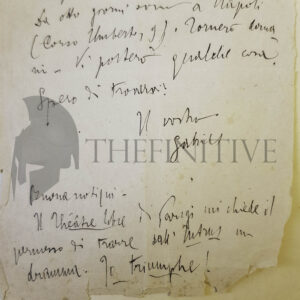 Da otto giorni sono a Napoli
(Corso Umberto, 9). Tornerò doma
ni - Vi porterò qualche cosa.
Spero di trovarvi?
Il vostro
THEFINITIVE
Gabriele
Buona notizia -
Il Théâtre libre di Parigi mi chiede il
permesso di trarre dall' Intrus un
dramma. Io triumphe!